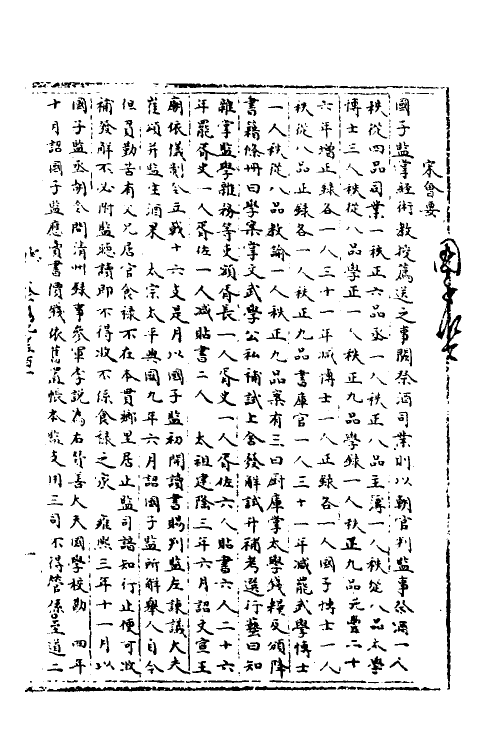 宋會要
國子監
國子監掌經術教授薦送之事闕祭酒司業則以朝官判監事祭酒一人
秩從四品司業一秩正六品丞一人秩正八品主簿一人秩從八品太學
博士三人秩從八品學正一人秩正九品學錄一人秩正九品元豐二十
六年增正錄各一人三十一年減博士一人正錄各一人國子博士一人
秩從八品正錄各一人秩正九品書庫官一人三十一年減罷武學博士
一人秩從八品教諭一人秩正九品案有三曰厨庫掌太學錢糧及頒降
書籍條冊曰學案掌文武學公私補試上舍發解試升補考選行藝曰知
雜掌監學雜務等吏額胥長一人胥史一人胥佐六人貼書六人二十六
年罷胥史一人胥佐一人減貼書二人 太祖建隆三年六月詔文宣王
廟依儀制令立戟十六支是月以國子監初開講書賜判監左諫議大夫
崔頌并監生酒果 太宗太平興國九年六月詔國子監所解舉人自今
但員勤苦有父兄居官食祿不在本貫鄉里居止監司諳知行止便可收
補發解不必附監聽讀即不得收不係食祿之家 雍熙三年十一月以
國子監丞朝令問清州錄事參軍李說為右贊善大夫國學校勘 四年
十月詔國子監應賣書價錢依舊置帳本監支用三司不得管係至道二